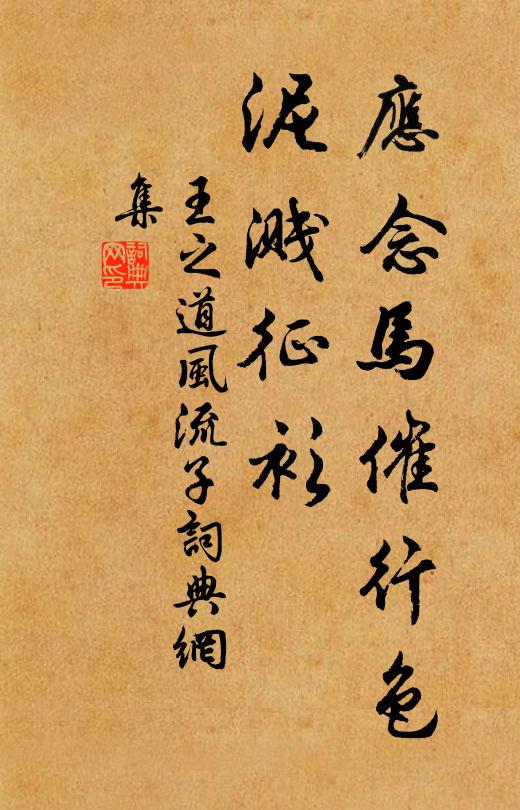 應念馬催行色
泥濺征衫
王之道風流子詞典網
集
詞典网印